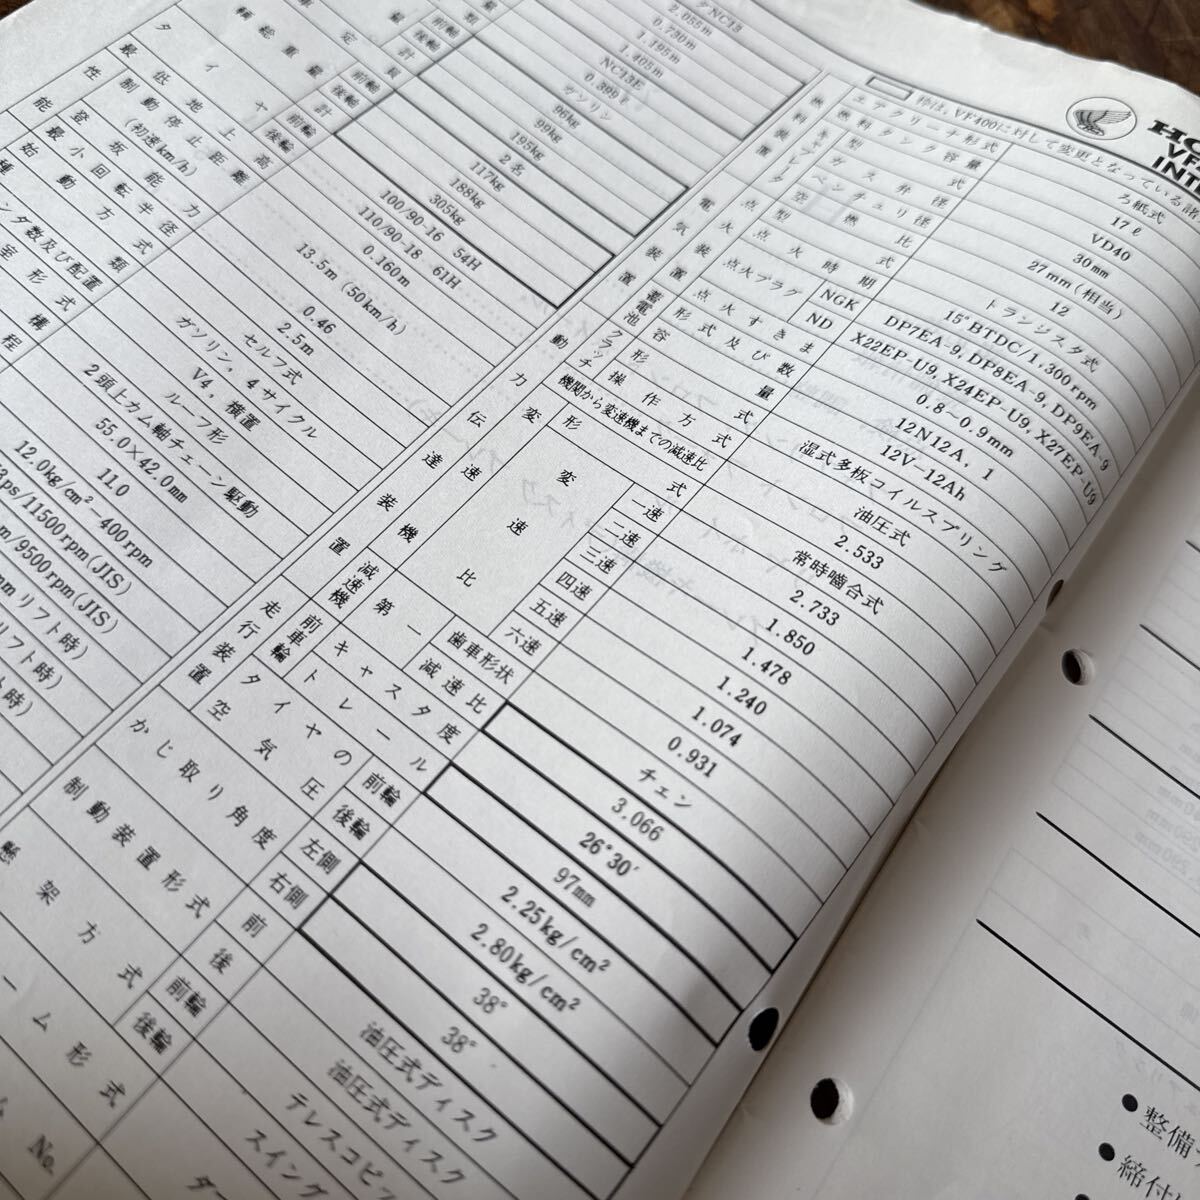 NC13
2.055m
0.730m
1.195m
1.405m
NC13E
0.399ℓ
ガソリン
96kg
99kg
195kg
2名
117kg
188kg
305kg
100/90-16 54H
110/90-18 61H
0.160m
13.5m (50km/h)
0.46
2.5m
セルフ式
ガソリン, 4サイクル
V4, 横置
ルーフ形
2頭上カム軸チェーン駆動
55.0×42.0mm
11.0
12.0kg/cm²-400rpm
ps/11500rpm(JIS)
m/9500rpm(JIS)
mmリフト時)
リフト時)
ト時)
タイヤ
前輪
後輪
最低地上高
性能
制動停止距離
(初速km/h)
登坂能力
最小回転半径
始動方式
種類
ンダ数及び配置
室形式
機構
程
枠は, VF400に対して変更となっている諸
HO
VF
INT
燃料装置
エアクリーナ形式 ろ紙式
燃料タンク容量 17ℓ
キャブレタ
型式 VD40
ガス弁径 30mm
ベンチュリ径 27mm(相当)
空燃比 12
電気装置
点火
型式 トランジスタ式
点火時期 15°BTDC/1,300rpm
点火プラグ
NGK DP7EA-9, DP8EA-9, DP9EA-9
ND X22EP-U9, X24EP-U9, X27EP-U9
点火すきま 0.8-0.9mm
蓄電池
形式及び数 12N12A, 1
容量 12V-12Ah
動力伝達装置
クラッチ
形式 湿式多板コイルスプリング
操作方式 油圧式
機関から変速機までの減速比 2.533
変速機
形式 常時噛合式
変速比
一速 2.733
二速 1.850
三速 1.478
四速 1.240
五速 1.074
六速 0.931
減速機
第一
歯車形状 チェン
減速比 3.066
走行装置
前車輪
キャスタ度 26°30′
トレール 97mm
タイヤの空気圧
前輪 2.25kg/cm²
後輪 2.80kg/cm²
かじ取り角度
左側 38°
右側 38°
制動装置形式
前 油圧式ディスク
後 油圧式ディスク
懸架方式
前輪 テレスコピ
後輪 スイング
ーム形式
ム No.
● 整備
● 締付